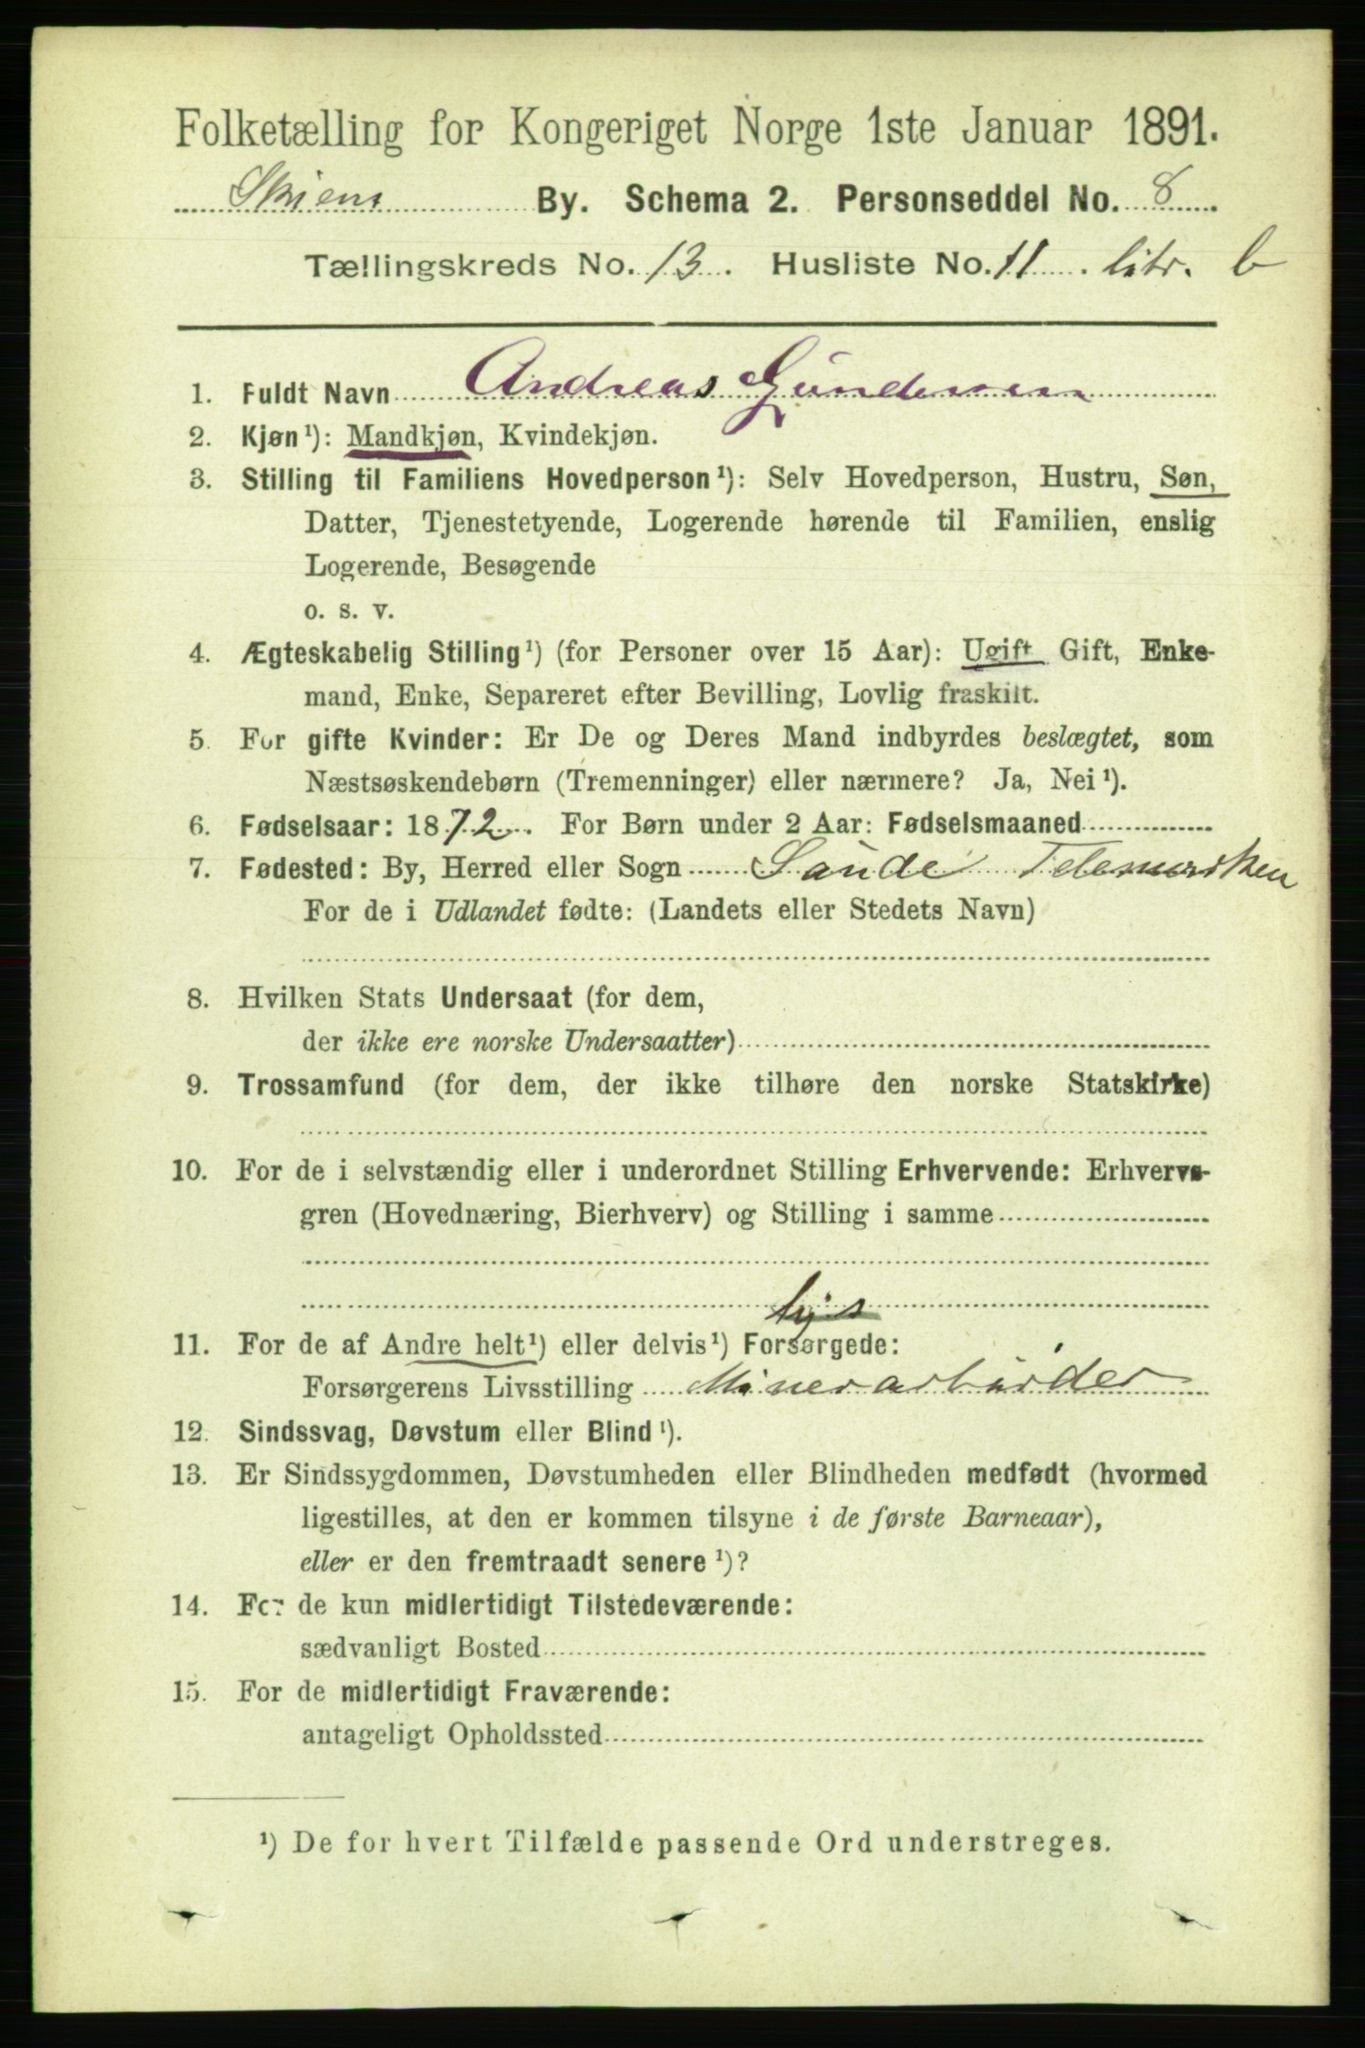 Folketælling for Kongeriget Norge 1ste Januar 1891.
Skiens By. Schema 2. Personseddel No. 8.
Tællingskreds No. 13. Husliste No. 11. litr. b
1. Fuldt Navn Andreas Gundersen
2. Kjøn¹): Mandkjøn, Kvindekjøn.
3. Stilling til Familiens Hovedperson¹): Selv Hovedperson, Hustru, Søn,
Datter, Tjenestetyende, Logerende hørende til Familien, enslig
Logerende, Besøgende
o. s. v.
4. Ægteskabelig Stilling¹) (for Personer over 15 Aar): Ugift Gift, Enke-
mand, Enke, Separeret efter Bevilling, Lovlig fraskilt.
5. For gifte Kvinder: Er De og Deres Mand indbyrdes beslægtet, som
Næstsøskendebørn (Tremenninger) eller nærmere? Ja, Nei¹).
6. Fødselsaar: 1872. For Børn under 2 Aar: Fødselsmaaned
7. Fødested: By, Herred eller Sogn Saude Telemarken
For de i Udlandet fødte: (Landets eller Stedets Navn)
8. Hvilken Stats Undersaat (for dem,
der ikke ere norske Undersaatter)
9. Trossamfund (for dem, der ikke tilhøre den norske Statskirke)
10. For de i selvstændig eller i underordnet Stilling Erhvervende: Erhvervs-
gren (Hovednæring, Bierhverv) og Stilling i samme
11. For de af Andre helt¹) eller delvis¹) Forsørgede:
Forsørgerens Livsstilling Minerarbeider
12. Sindssvag, Døvstum eller Blind¹).
13. Er Sindssygdommen, Døvstumheden eller Blindheden medfødt (hvormed
ligestilles, at den er kommen tilsyne i de første Barneaar),
eller er den fremtraadt senere¹)?
14. For de kun midlertidigt Tilstedeværende:
sædvanligt Bosted
15. For de midlertidigt Fraværende:
antageligt Opholdssted
¹) De for hvert Tilfælde passende Ord understreges.